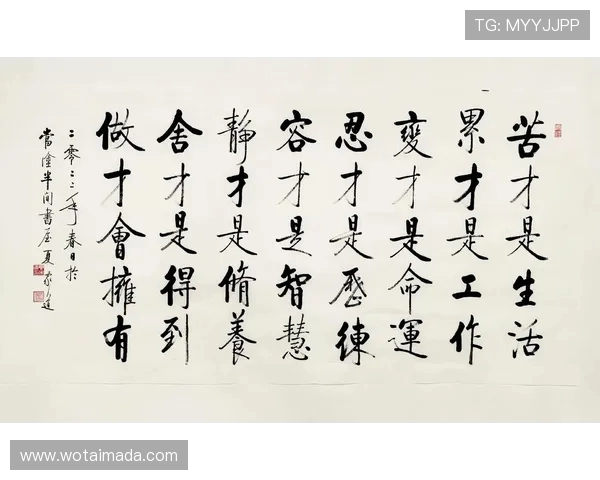 TG: MYYJJPP
苦才是生活
累才是工作
變才是命運
忍才是歷練
容才是智慧
靜才是脩養
舍才是得到
做才會擁有
二零二二年春日於
當塗半間書屋夏家
www.wotaimada.com